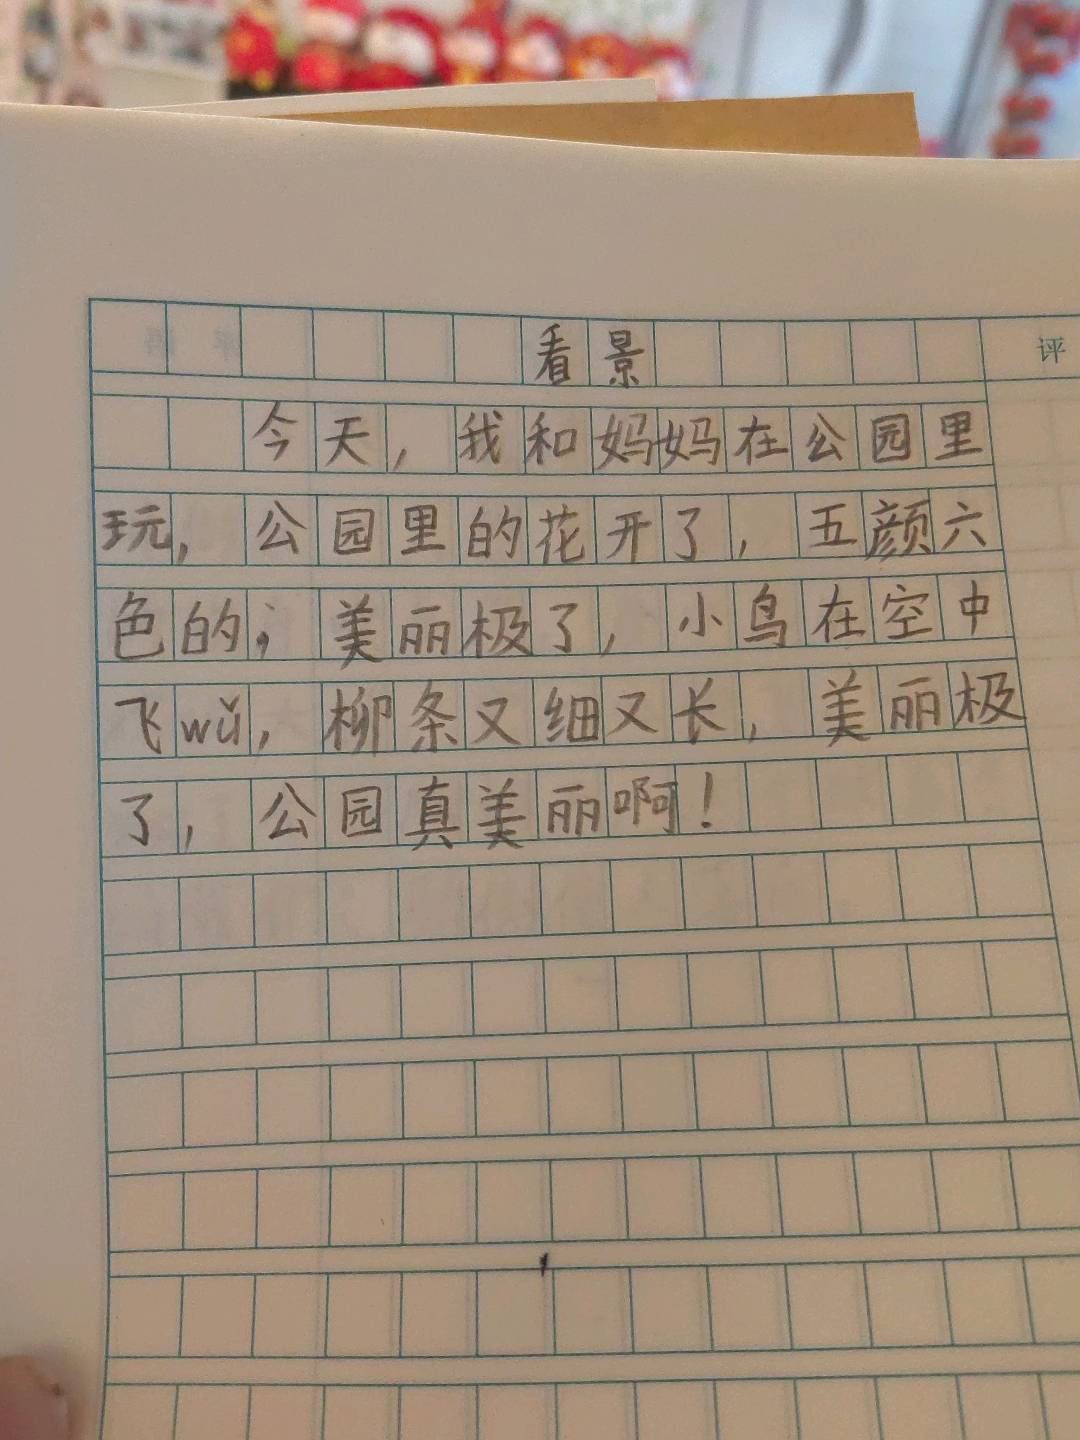 看景
评
今天，我和妈妈在公园里
玩，公园里的花开了，五颜六
色的；美丽极了，小鸟在空中
飞wǔ，柳条又细又长，美丽极
了，公园真美丽啊！